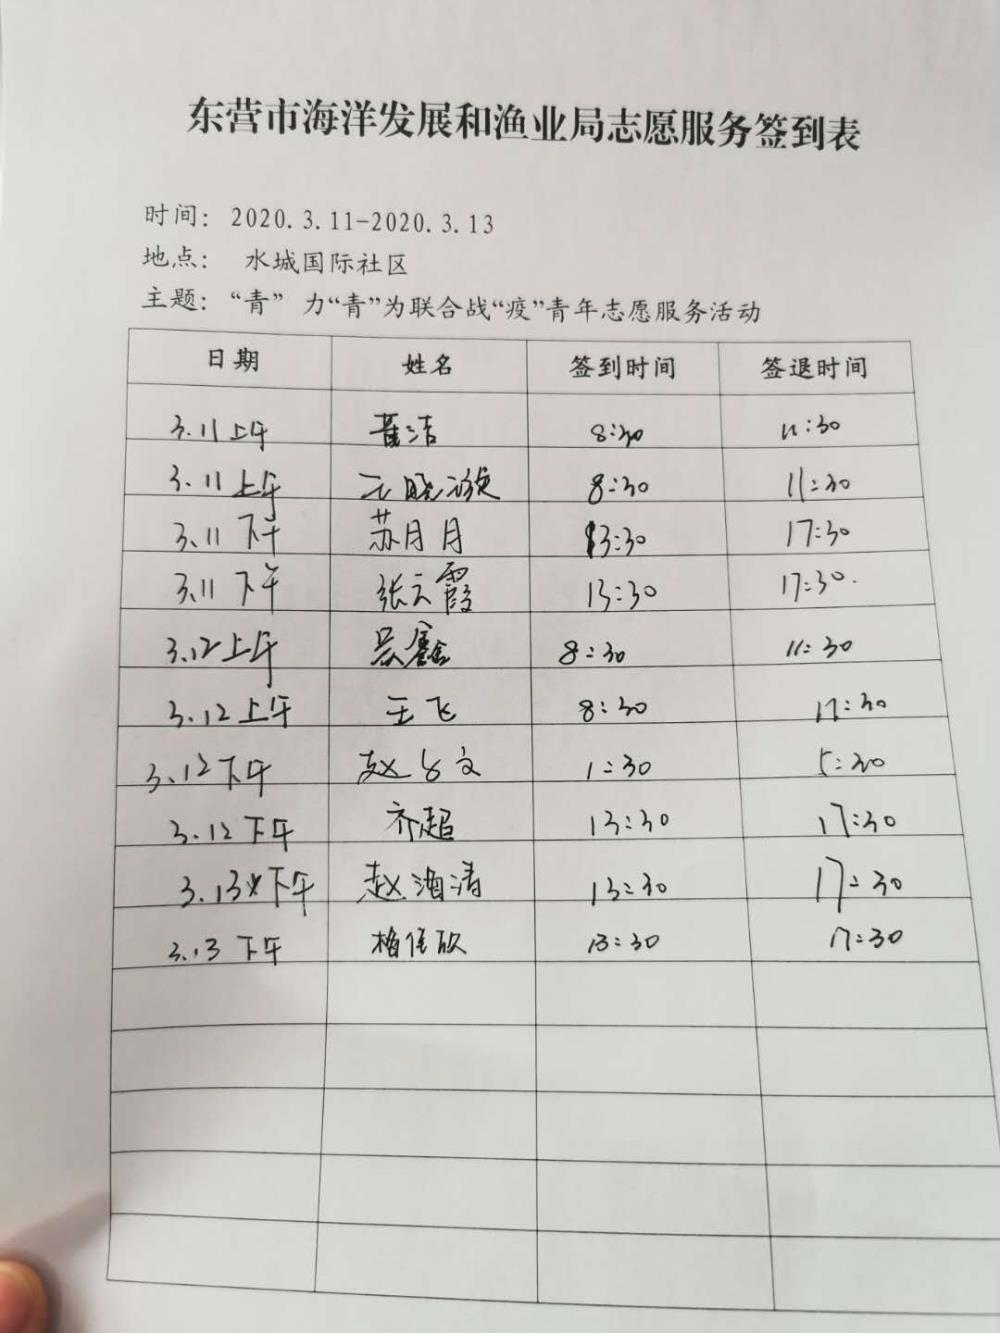 东营市海洋发展和渔业局志愿服务签到表
时间：2020.3.11-2020.3.13
地点： 水城国际社区
主题：“青” 力“青”为联合战“疫”青年志愿服务活动
日期 姓名 签到时间 签退时间
3.11上午 董洁 8:30 11:30
3.11上午 王晓璇 8:30 11:30
3.11下午 苏月月 13:30 17:30
3.11下午 张云霞 13:30 17:30.
3.12上午 吴鑫 8:30 11:30
3.12上午 王飞 8:30 17:30
3.12下午 赵 文 1:30 5:30
3.12下午 齐超 13:30 17:30
3.13 下午 赵海清 13:30 17:30
3.13下午 13:30 17:30